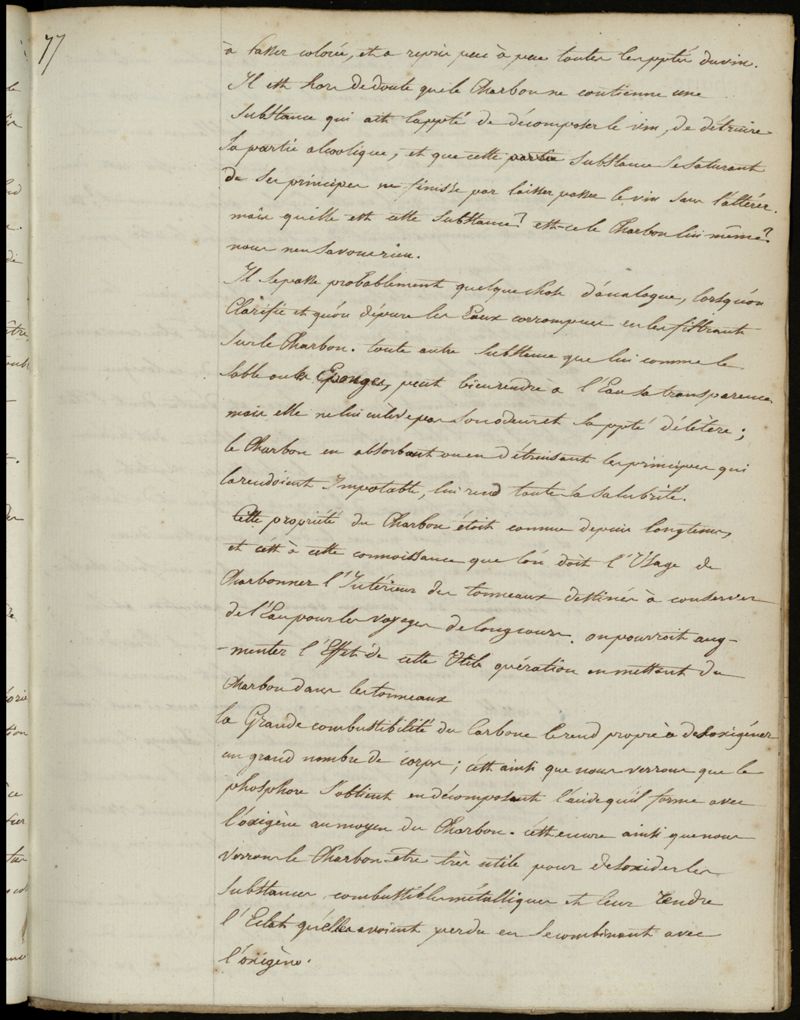 77
à passer colorée, et a repris peu à peu toutes les pptés du vin.
Il est hors de doute que le Charbon ne contienne une
substance qui ait la ppté de décomposer le vin, de détruire
sa partie alcoolique, et que cette partie substance se saturant
de ses principes ne finisse par laisser passer le vin sans l'altérer.
mais quelle est cette substance? est-ce le Charbon lui même?
nous n'en savons rien.
Il se passe probablement quelque chose d'analogue, lorsqu'on
Clarifie et qu'on dépure les Eaux corrompues en les filtrant
sur le Charbon. toute autre substance que lui comme le
sable ou les Eponges, peut bien rendre à l'Eau sa transparence
mais elle ne lui enlève pas son odeur et sa ppté délétère;
le Charbon en absorbant ou en détruisant les principes qui
la rendoient Impotable, lui rend toute sa salubrité.
Cette propriété du Charbon étoit connue depuis longtems,
et c'est à cette connoissance que l'on doit l'Usage de
Charbonner l'Intérieur des tonneaux destinés à conserver
de l'Eau pour les voyages de long cours. on pourroit aug-
-menter l'Effet de cette Utile opération en mettant du
Charbon dans les tonneaux
la Grande combustibilité du Carbone le rend propre à desoxigéner
un grand nombre de corps; c'est ainsi que nous verrons que le
phosphore s'obtient en décomposant l'acide qu'il forme avec
l'oxigène au moyen du Charbon. c'est encore ainsi que nous
verrons le Charbon être très utile pour desoxider les
substances combustibles métalliques et leur rendre
l'Eclat qu'elles avoient perdu en se combinant avec
l'oxigène.